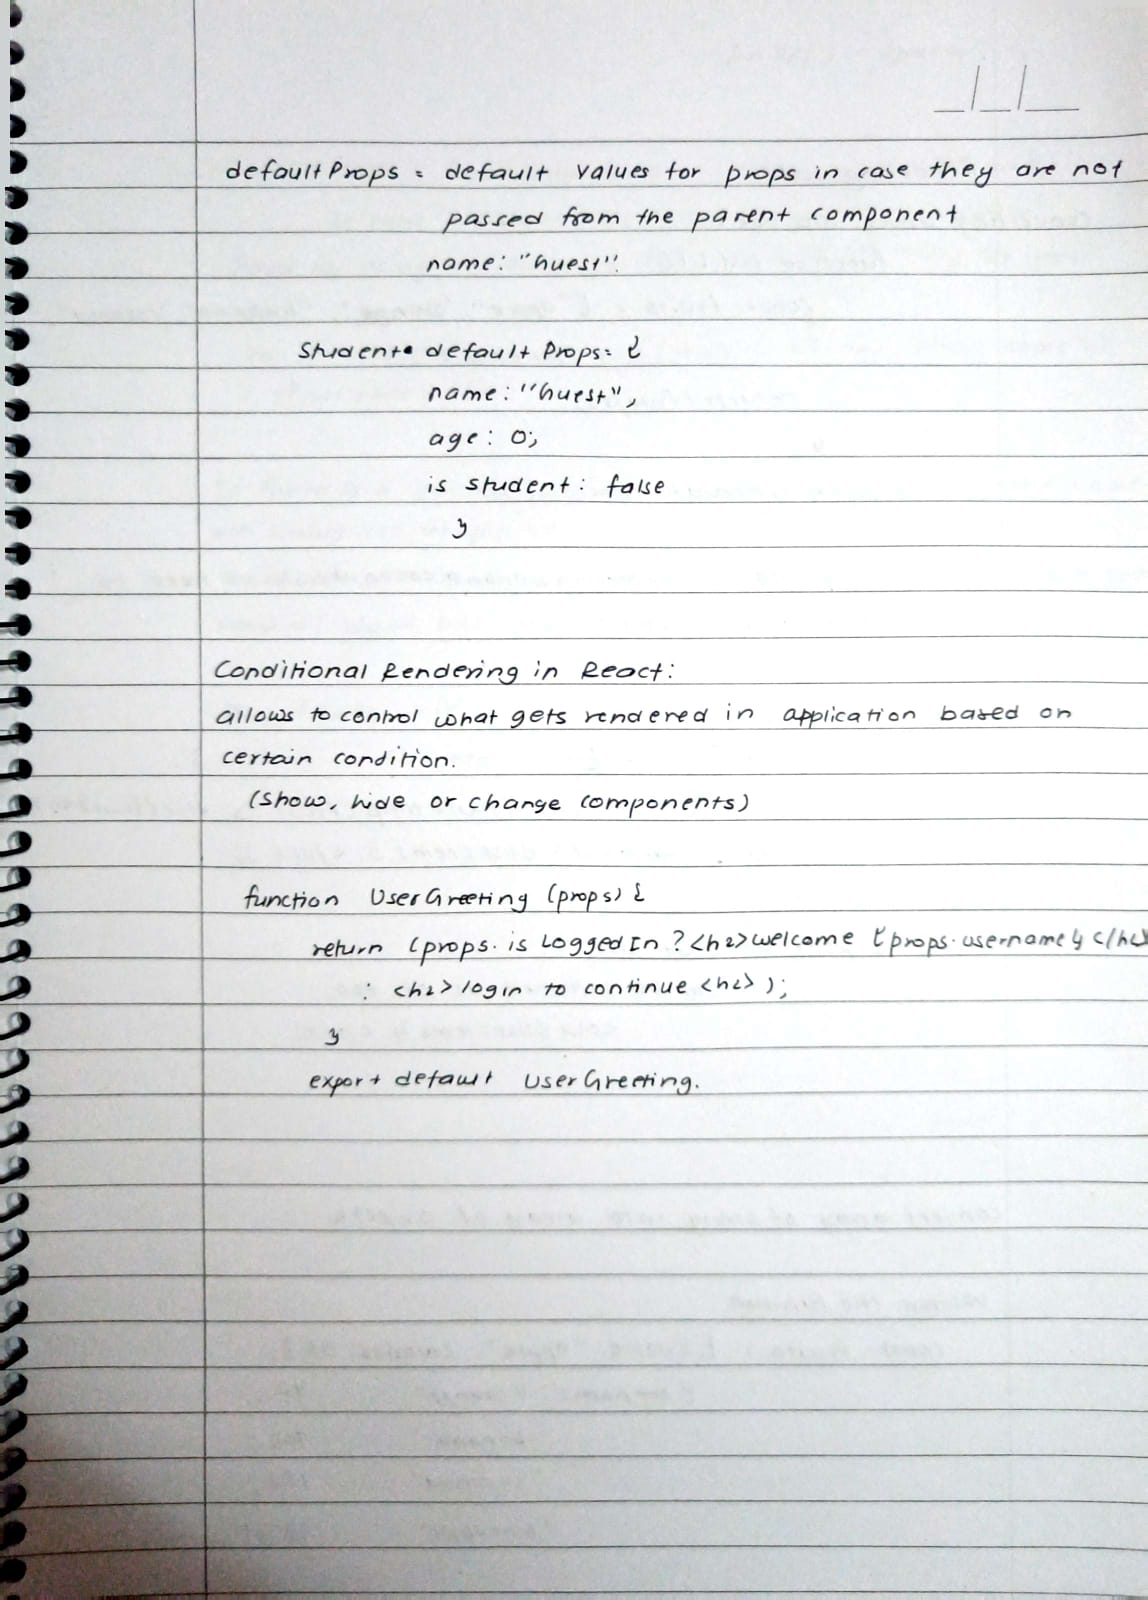 _/_/_
defaultProps = default values for props in case they are not
passed from the parent component
name: "Guest".
Student. defaultProps = {
name: "Guest",
age: 0;
is student: false
}
Conditional Rendering in React:
allows to control what gets rendered in application based on
certain condition.
(show, hide or change components)
function UserGreeting (props) {
return (props. is Logged In ? <h2> welcome {props. username} </h2>
: <h2> login to continue <h2> );
}
export default UserGreeting.